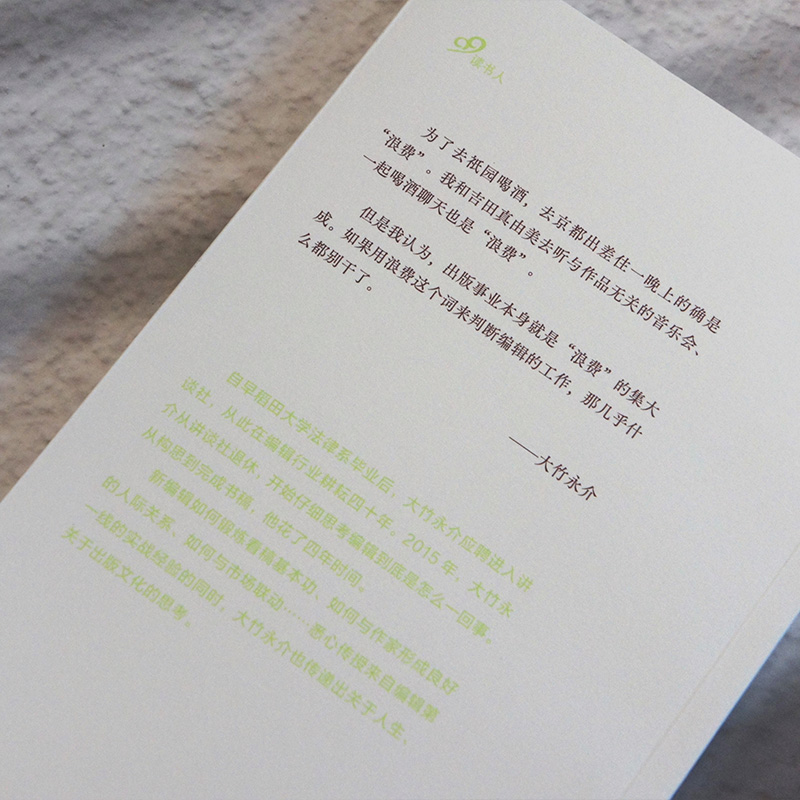 99读书人
为了去祇园喝酒，去京都出差住一晚上的确是
“浪费”。我和吉田真由美去听与作品无关的音乐会、
一起喝酒聊天也是“浪费”。
但是我认为，出版事业本身就是“浪费”的集大
成。如果用浪费这个词来判断编辑的工作，那几乎什
么都别干了。
——大竹永介
自早稻田大学法律系毕业后，大竹永介应聘进入讲
谈社，从此在编辑行业耕耘四十年。2015年，大竹永
介从讲谈社退休，开始仔细思考编辑到底是怎么一回事。
从构思到完成书稿，他花了四年时间。
新编辑如何锻炼看稿基本功、如何与作家形成良好
的人际关系、如何与市场联动……悉心传授来自编辑第
一线的实战经验的同时，大竹永介也传递出关于人生、
关于出版文化的思考。